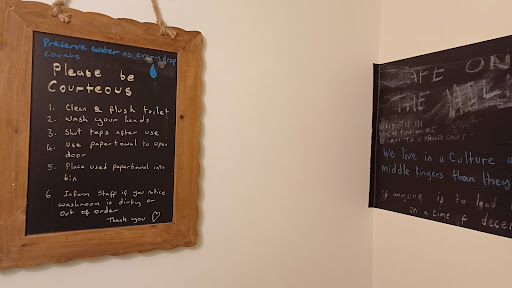 Preserve water as every drop
counts
Please be
Courteous
1. Clean & flush toilet
2. Wash your hands
3. Shut taps after use
4. Use papertowel to open
door
5. Place used papertowel into
bin
6 Inform Staff if you notice
washroom is dirty or
out of order
Thank you ♡
AFE ON
THE HILL
WHY FIT IN
WHEN YOU WERE
BORN TO STAND OUT!
We live in a Culture
middle fingers than they
if anyone is to lead
in a time of decei